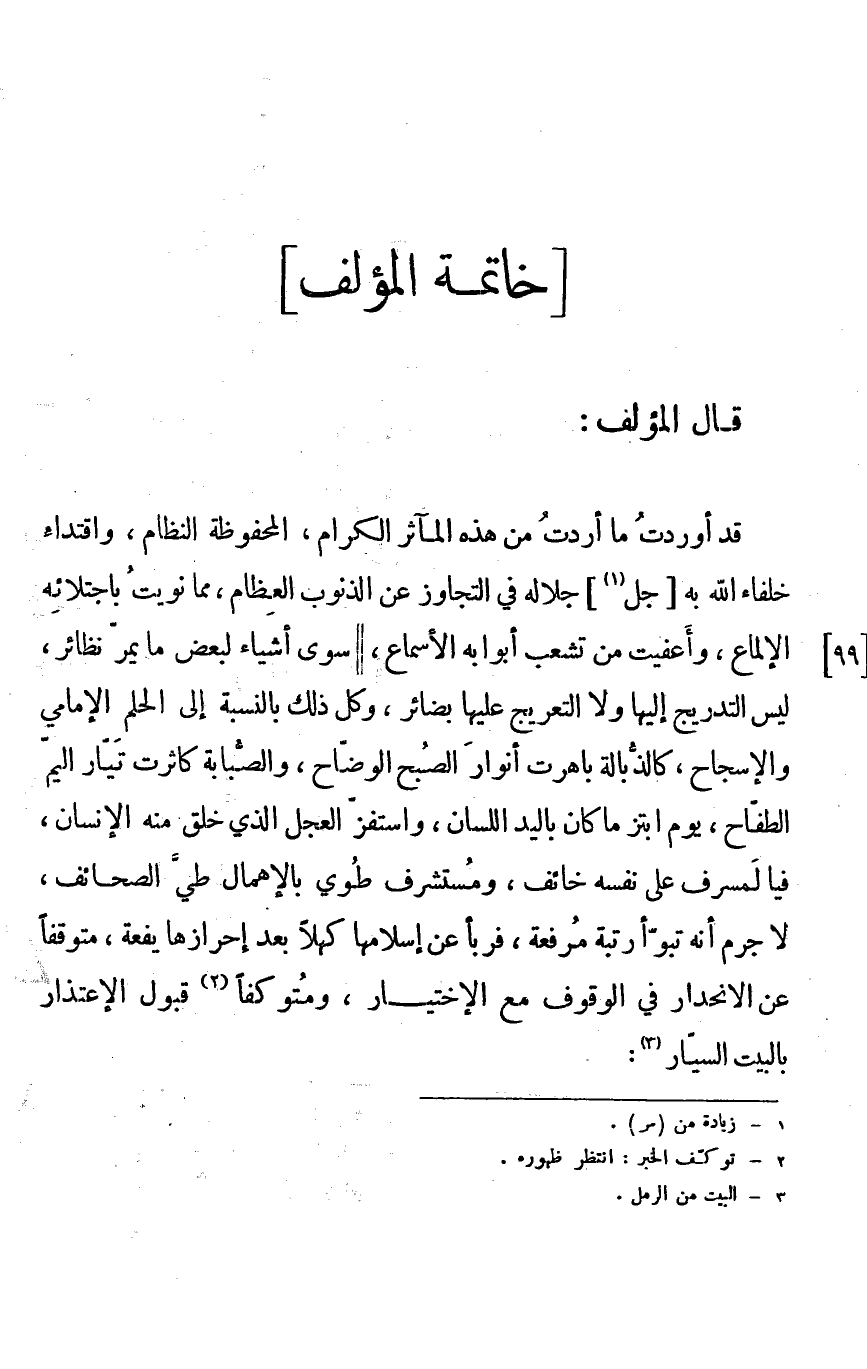 [خاتمة المؤلف]
قال المؤلف :
قد أوردتُ ما أردتُ من هذه المآثر الكرام ، المحفوظة النظام ، واقتداء
خلفاء الله به [ جل (١) ] جلاله في التجاوز عن الذنوب العظام ، مما نويتُ باجتلائه
[٩٩] الإلماع ، وأَعفيت من تشعب أبوابه الأسماع ، || سوى أشياء لبعض ما يمرّ نظائر ،
ليس التدريج إليها ولا التعريج عليها بضائر ، وكل ذلك بالنسبة إلى الحلم الإمامي
والإسجاح ، كالذُّبالة باهرت أنوارَ الصُبح الوضّاح ، والصُّبابة كاثرت تَيّار اليمّ
الطفّاح ، يوم ابتز ما كان باليد اللسان ، واستفزّ العجل الذي خلق منه الإنسان ،
فيا لَمسرف على نفسه خائف ، ومُستشرف طُوي بالإهمال طيَّ الصحائف ،
لا جرم أنه تبوّأ رتبة مُرفعة ، فربأ عن إسلامها كهلاً بعد إحرازها يفعة ، متوقفاً
عن الانحدار في الوقوف مع الإختيار ، ومُتوكفاً (٢) قبول الإعتذار
بالبيت السيّار (٣) :
١ – زيادة من (س) .
٢ – توكّف الخبر : انتظر ظهوره .
٣ – البيت من الرمل .